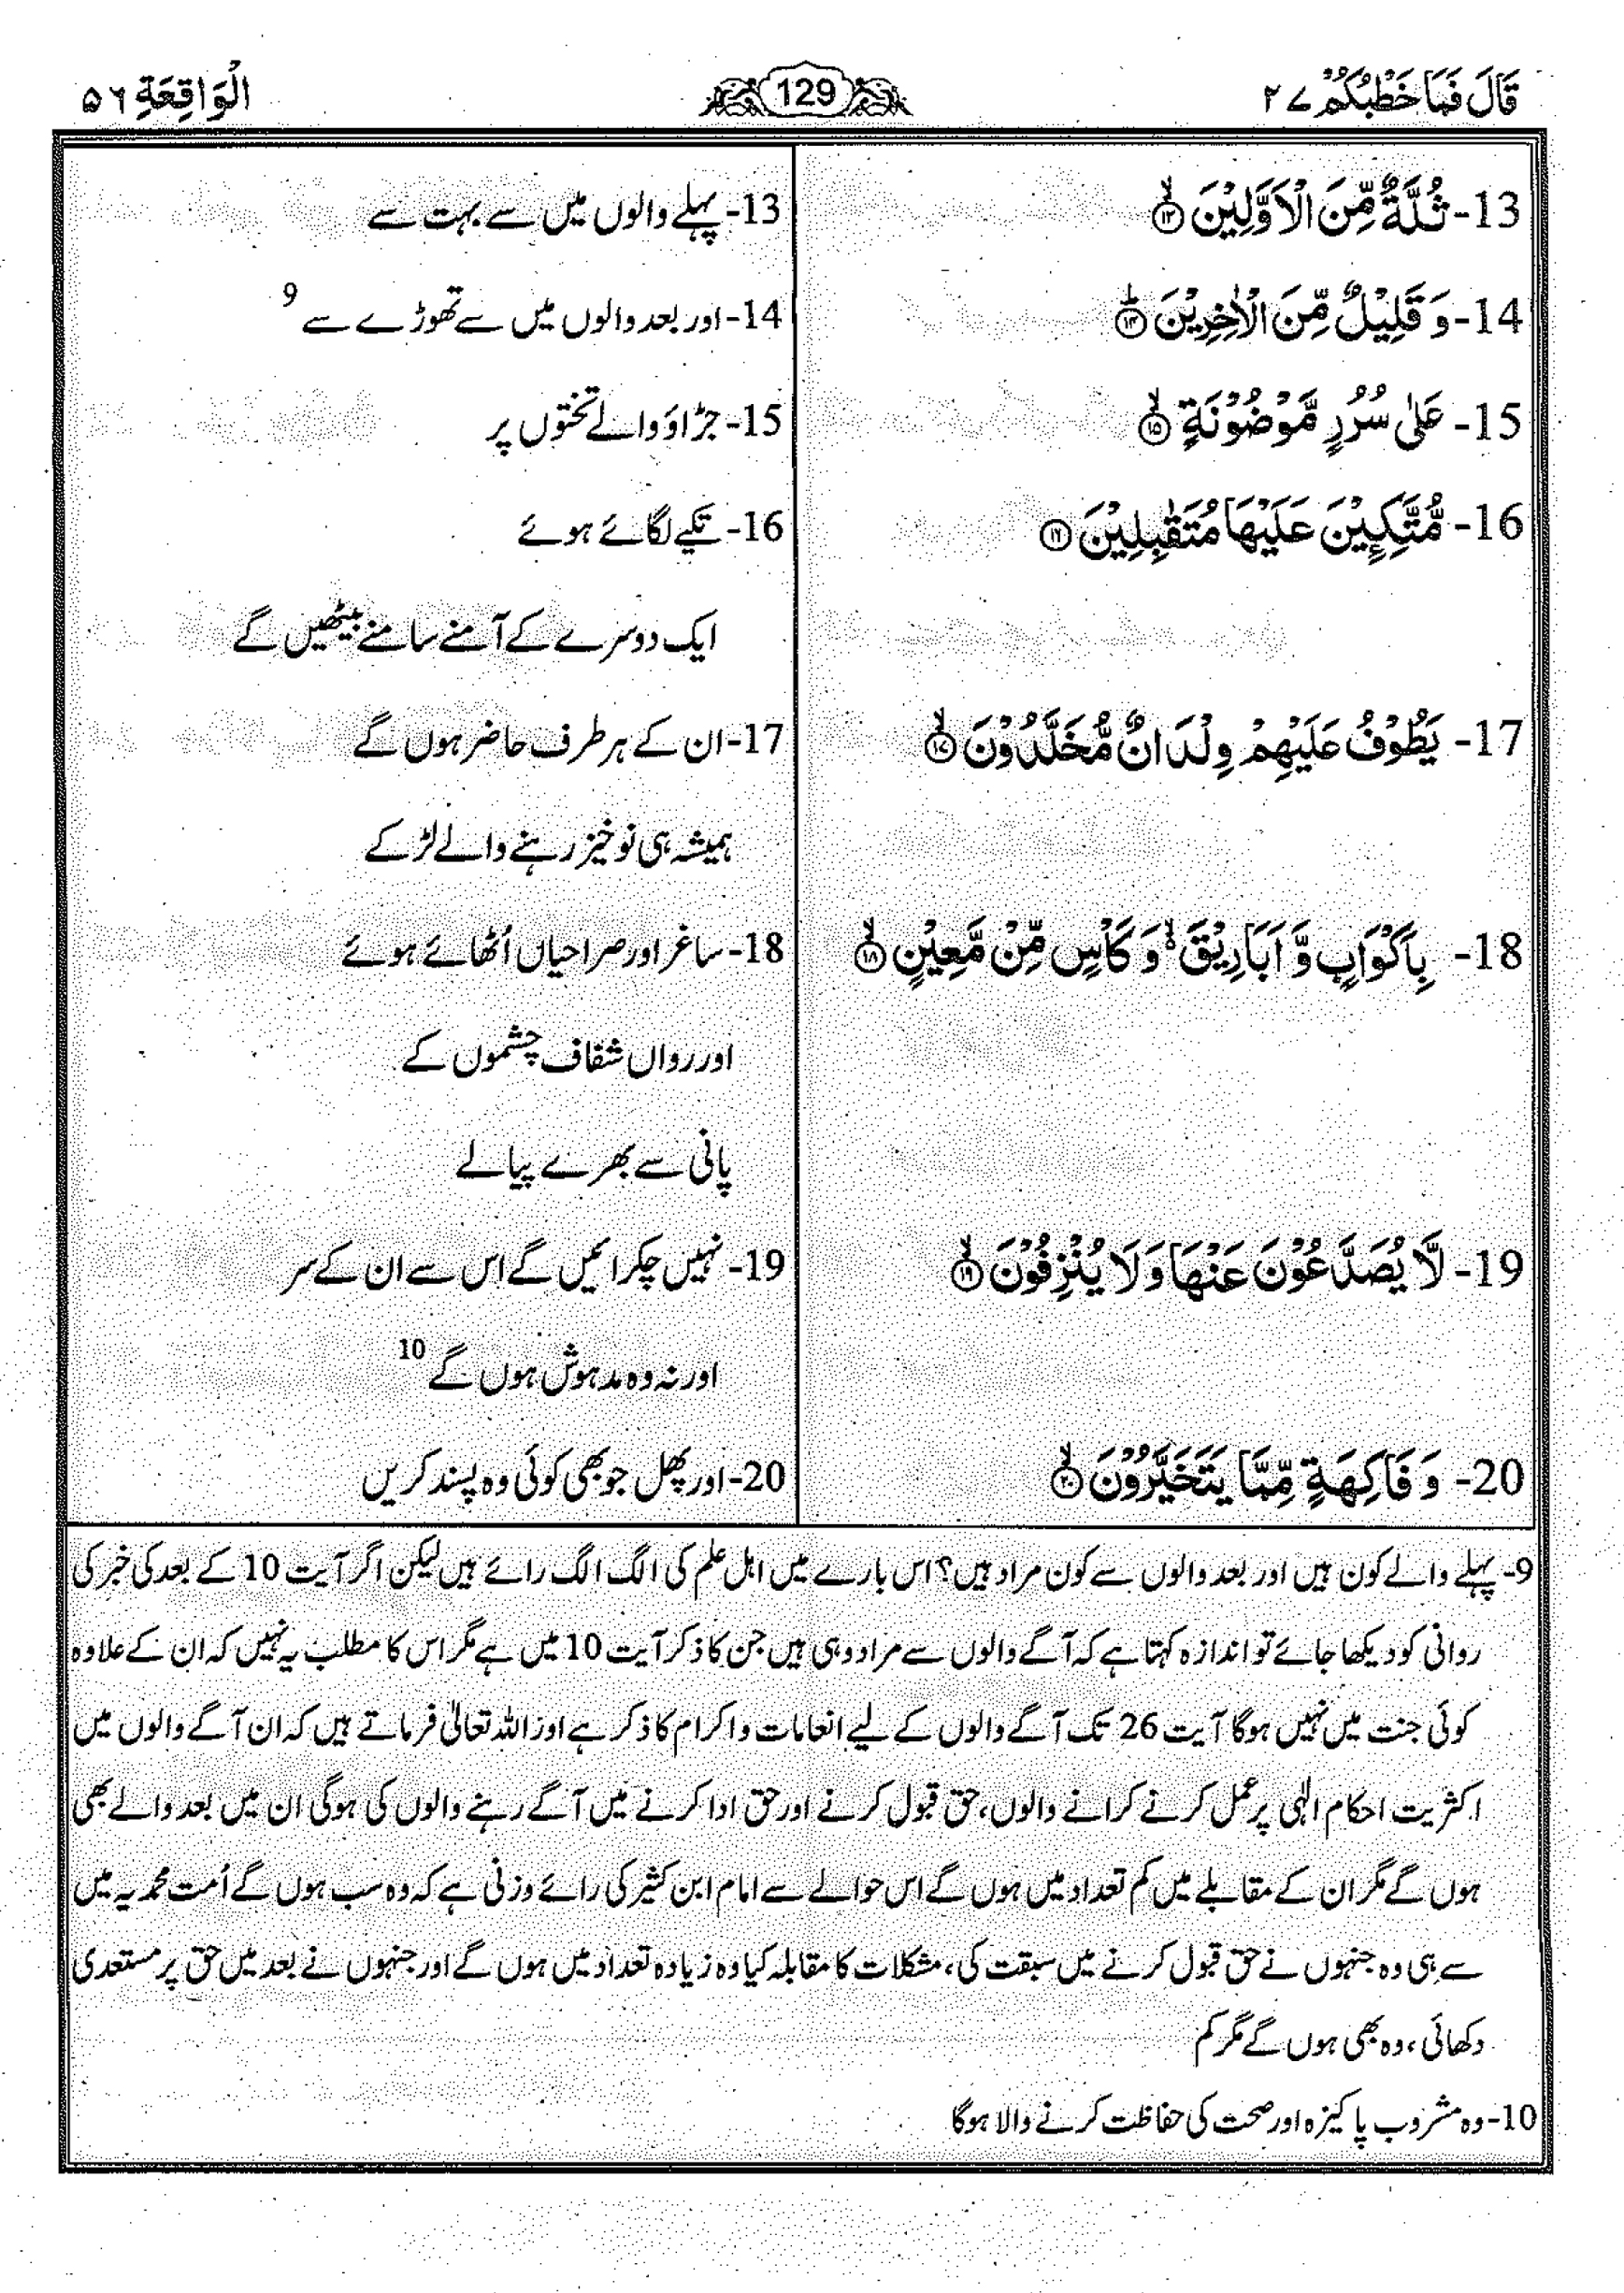 قَالَ فَمَا خَطْبُكُمْ ۲۷
129
الْوَاقِعَةِ ۵۶
13- ثُلَّةٌ مِّنَ الْاَوَّلِيْنَ ۙ﴿۱۳﴾
13- پہلے والوں میں سے بہت سے
14- وَ قَلِيْلٌ مِّنَ الْاٰخِرِيْنَ ؕ﴿۱۴﴾
14- اور بعد والوں میں سے تھوڑے سے 9
15- عَلٰى سُرُرٍ مَّوْضُوْنَةٍ ۙ﴿۱۵﴾
15- جڑاؤ والے تختوں پر
16- مُّتَّكِـِٕيْنَ عَلَيْهَا مُتَقٰبِلِيْنَ ﴿۱۶﴾
16- تکیے لگائے ہوئے
ایک دوسرے کے آمنے سامنے بیٹھیں گے
17- يَطُوْفُ عَلَيْهِمْ وِلْدَانٌ مُّخَلَّدُوْنَ ۙ﴿۱۷﴾
17- ان کے ہر طرف حاضر ہوں گے
ہمیشہ ہی نوخیز رہنے والے لڑکے
18- بِاَكْوَابٍ وَّ اَبَارِيْقَ ۙ۬ وَ كَاْسٍ مِّنْ مَّعِيْنٍ ۙ﴿۱۸﴾
18- ساغر اور صراحیاں اُٹھائے ہوئے
اور رواں شفاف چشموں کے
پانی سے بھرے پیالے
19- لَّا يُصَدَّعُوْنَ عَنْهَا وَ لَا يُنْزِفُوْنَ ۙ﴿۱۹﴾
19- نہیں چکرائیں گے اس سے ان کے سر
اور نہ وہ مدہوش ہوں گے 10
20- وَ فَاكِهَةٍ مِّمَّا يَتَخَيَّرُوْنَ ۙ﴿۲۰﴾
20- اور پھل جو بھی کوئی وہ پسند کریں
9- پہلے والے کون ہیں اور بعد والوں سے کون مراد ہیں؟ اس بارے میں اہل علم کی الگ الگ رائے ہیں لیکن اگر آیت 10 کے بعد کی خبر کی
روانی کو دیکھا جائے تو اندازہ کہتا ہے کہ آگے والوں سے مراد وہی ہیں جن کا ذکر آیت 10 میں ہے مگر اس کا مطلب یہ نہیں کہ ان کے علاوہ
کوئی جنت میں نہیں ہوگا آیت 26 تک آگے والوں کے لیے انعامات و اکرام کا ذکر ہے اور اللہ تعالیٰ فرماتے ہیں کہ ان آگے والوں میں
اکثریت احکام الٰہی پر عمل کرنے کرانے والوں، حق قبول کرنے اور حق ادا کرنے میں آگے رہنے والوں کی ہوگی ان میں بعد والے بھی
ہوں گے مگر ان کے مقابلے میں کم تعداد میں ہوں گے اس حوالے سے امام ابن کثیر کی رائے وزنی ہے کہ وہ سب ہوں گے اُمت محمدیہ میں
سے ہی وہ جنہوں نے حق قبول کرنے میں سبقت کی، مشکلات کا مقابلہ کیا وہ زیادہ تعداد میں ہوں گے اور جنہوں نے بعد میں حق پر مستعدی
دکھائی، وہ بھی ہوں گے مگر کم
10- وہ مشروب پاکیزہ اور صحت کی حفاظت کرنے والا ہوگا